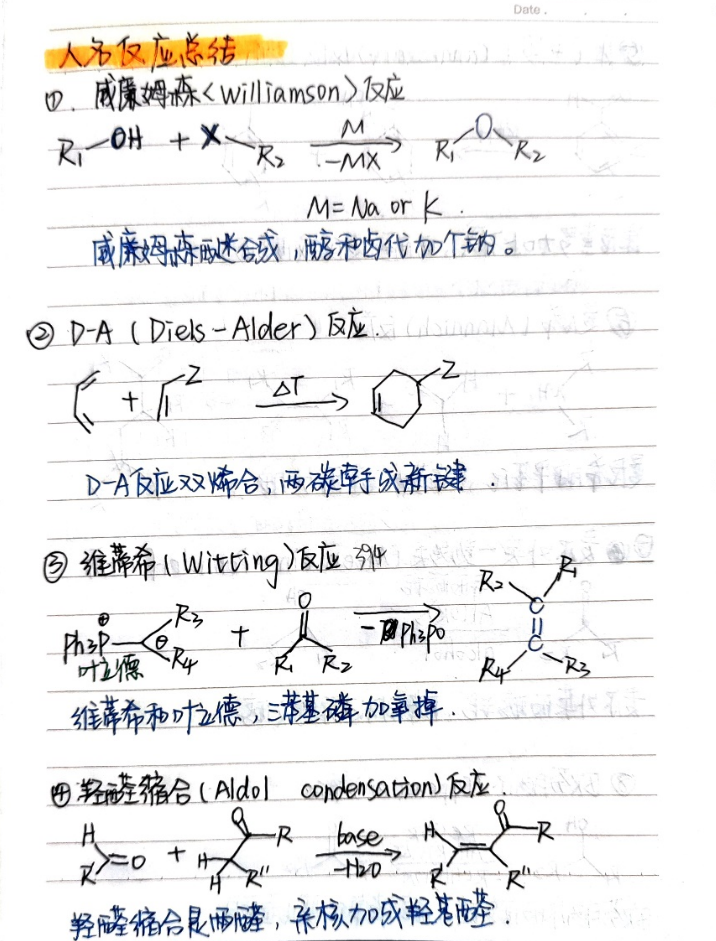 Date.
人名反应总结
①. 威廉姆森<Williamson>反应
R₁—OH + X—R₂ M -MX → R₁ O R₂
M=Na or K.
威廉姆森醚合成,醇和卤代加个钠。
② D-A (Diels-Alder) 反应.
+ Z ΔT → Z
D-A反应双烯合,两碳牵手成新键.
③ 维蒂希(Witting)反应 394
Ph₃P ⊕ ⊖ R₃ R₄ + O R₁ R₂ -Ph₃PO → R₂ R₁ C=C R₄ R₃
叶立德
维蒂希和叶立德,三苯基磷加氧掉.
④ 羟醛缩合(Aldol condensation)反应.
H R' =O + H H O R R" base -H₂O → H R' O R R"
羟醛缩合是两醛,亲核加成羟基醛.